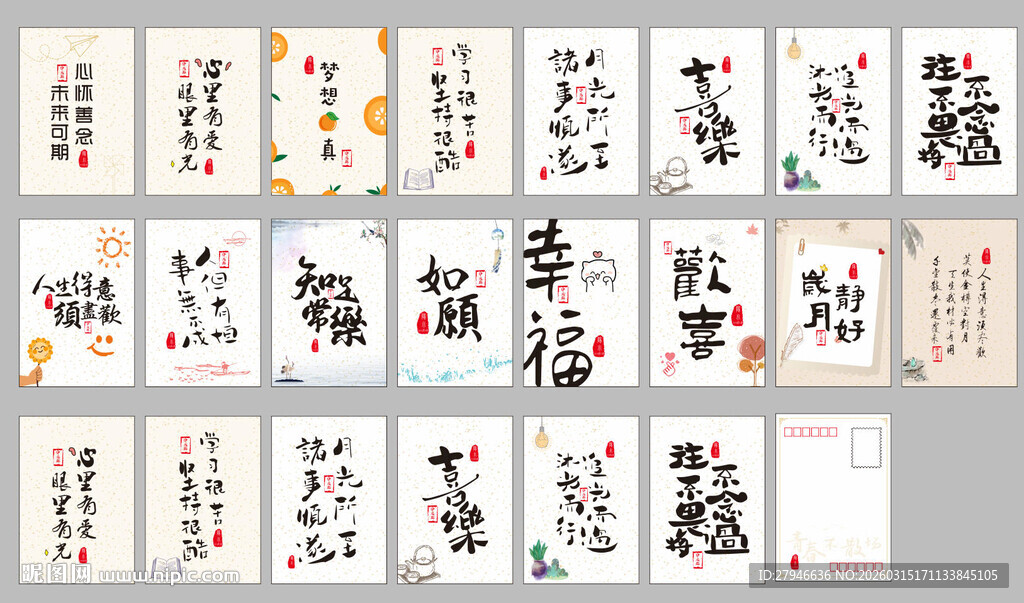 心怀善念
未来可期
心里有爱
眼里有光
梦想
真
学习很苦
坚持很酷
月光所至
諸事順遂
喜樂
追光而遇
沐光而行
不念過
往不畏
人生得意
須盡歡
人但有恒
事無不成
知足
常樂
如願
幸福
歡喜
歲月
静好
人生得意須尽歡
莫使金樽空對月
天生我材必有用
千金散尽還復来
心里有爱
眼里有光
学习很苦
坚持很酷
月光所至
諸事順遂
喜樂
追光而遇
沐光而行
不念過
往不畏
青春不散场
昵图网 www.nipic.com
ID:27946636 NO:20260315171133845105